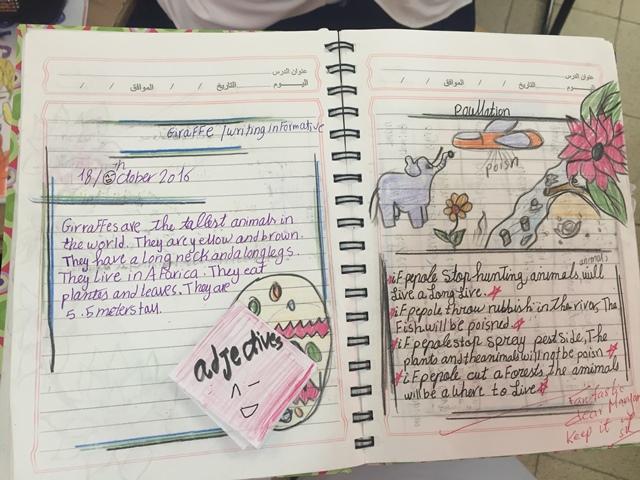 عنوان الدرس
اليـــوم التاريخ / / الموافق / /
Giraffe / writing informative
18/October 2016 th
Girraffes are the tallest animals in
the world. They are yellow and brown.
They have a long neck and a long legs.
They Live in AFarica. They eat
plantes and leaves. They are
5.5 meters tall.
adjectives
عنوان الدرس
اليـــوم التاريخ / / الموافق / /
Poullation
poish
iF pepole Stop hunting, animals will
Live a Long Live.
iF pepole throw rubbish in The river, The animals
Fish will be poisned.
iF pepale stop spray pestside, The
plants and the animals will not be poisn
iF pepole cut a Forests, The amimals
will be a where to Live
Fantastic
dear Maryam
Keep it up